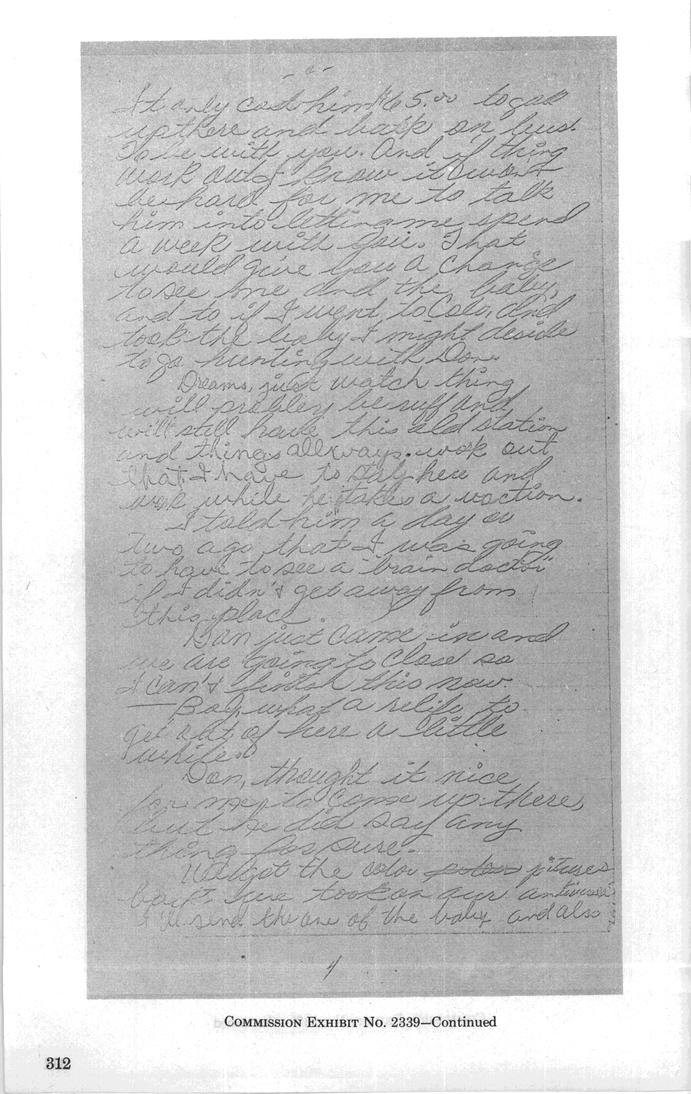 It only cost him $65.00 to go
up there and back on bus.
To be with you. And if thing
work out I know it won't
be hard for me to talk
him into letting me spend
a week with you. That
would give you a change
to see me and the baby,
and to if I went to Colo, and
took the baby I might deside
to go hunting with Don.
Dreams, just watch thing
will prebley be ruff and
will still have this old station
and things allways work out
that I have to stay here and
work while he takes a vaction.
I told him a day or
two ago that I was going
to have to see a brain doctor
if I didn't get away from
this place.
Dan just came in and
we are going to close so
I can't finish this now
— Boy, what a relife to
get out of here a little
while.
Don, thought it nice
for me to come up there,
but he did say any
thing for sure.
We got the color pitures
back we took on our
I'll send the one of the baby and also
4
COMMISSION EXHIBIT No. 2339—Continued
312